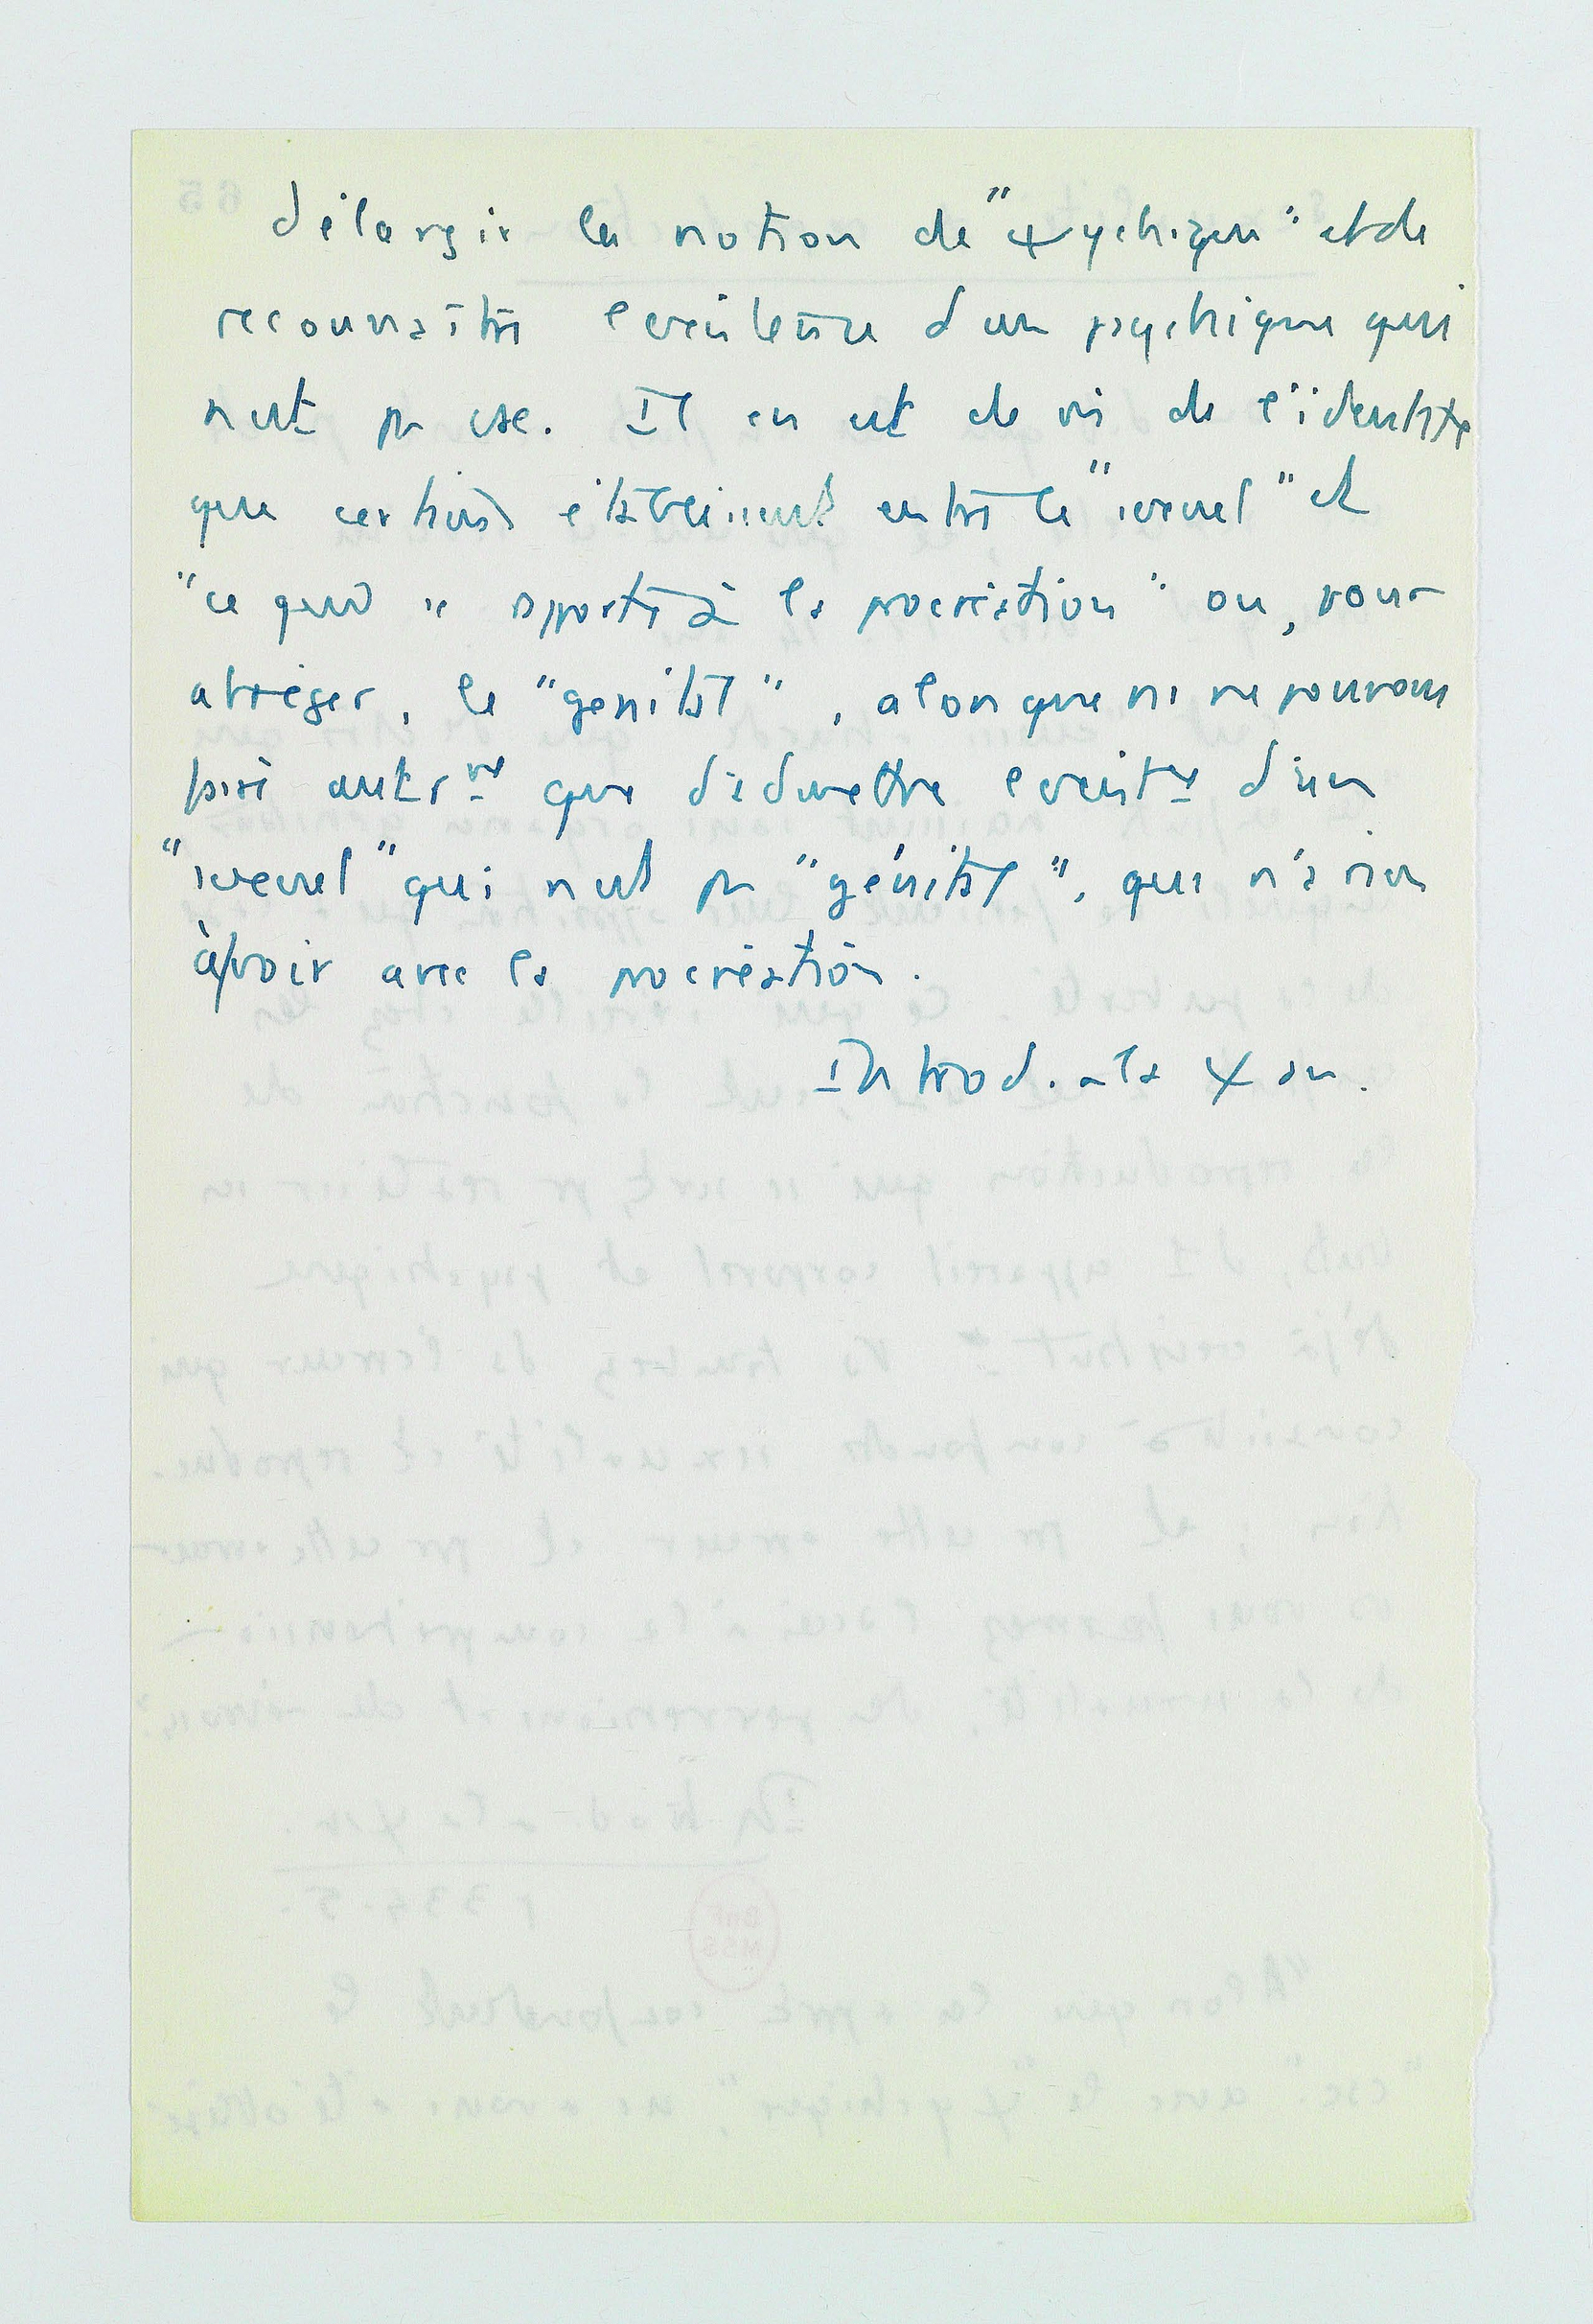 d'élargir la notion de "ψychique" et de
reconnaître l'existence d'un psychique qui
n'est pas csc. Il en est de m̂ de l'identité
que certains établissent entre le "sexuel" et
"ce qui se rapporte à la procréation" ou, pour
abréger, le "génital", alors que ns ne pouvons
faire autrᵐᵗ que d'admettre l'existᶜᵉ d'un
"sexuel" qui n'est pas "génital", qui n'a rien
à voir avec la procréation.
Introd. à la ψ an.